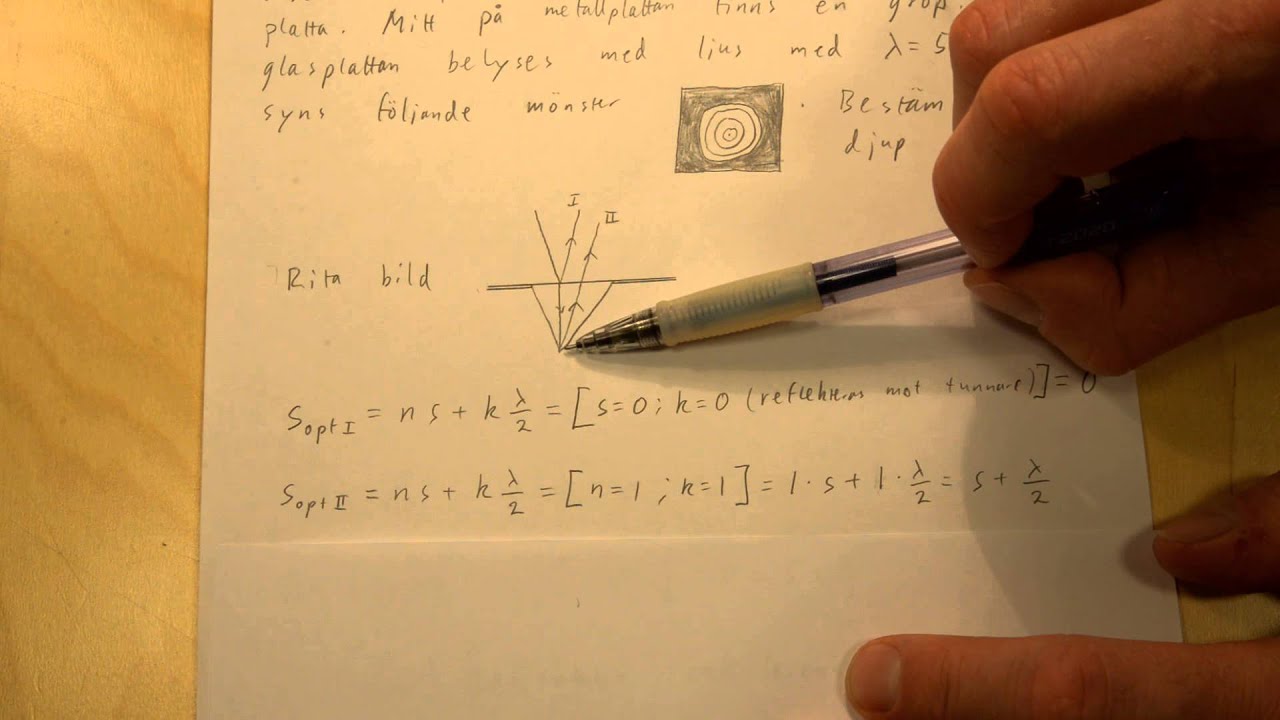 platta. Mitt på metallplattan finns en grop.
glasplattan belyses med ljus med λ = 5
syns följande mönster . Bestäm
djup
I
II
Rita bild
S_opt I = n s + k λ/2 = [s=0; k=0 (reflekteras mot tunnare)] = 0
S_opt II = n s + k λ/2 = [n=1; k=1] = 1·s + 1·λ/2 = s + λ/2